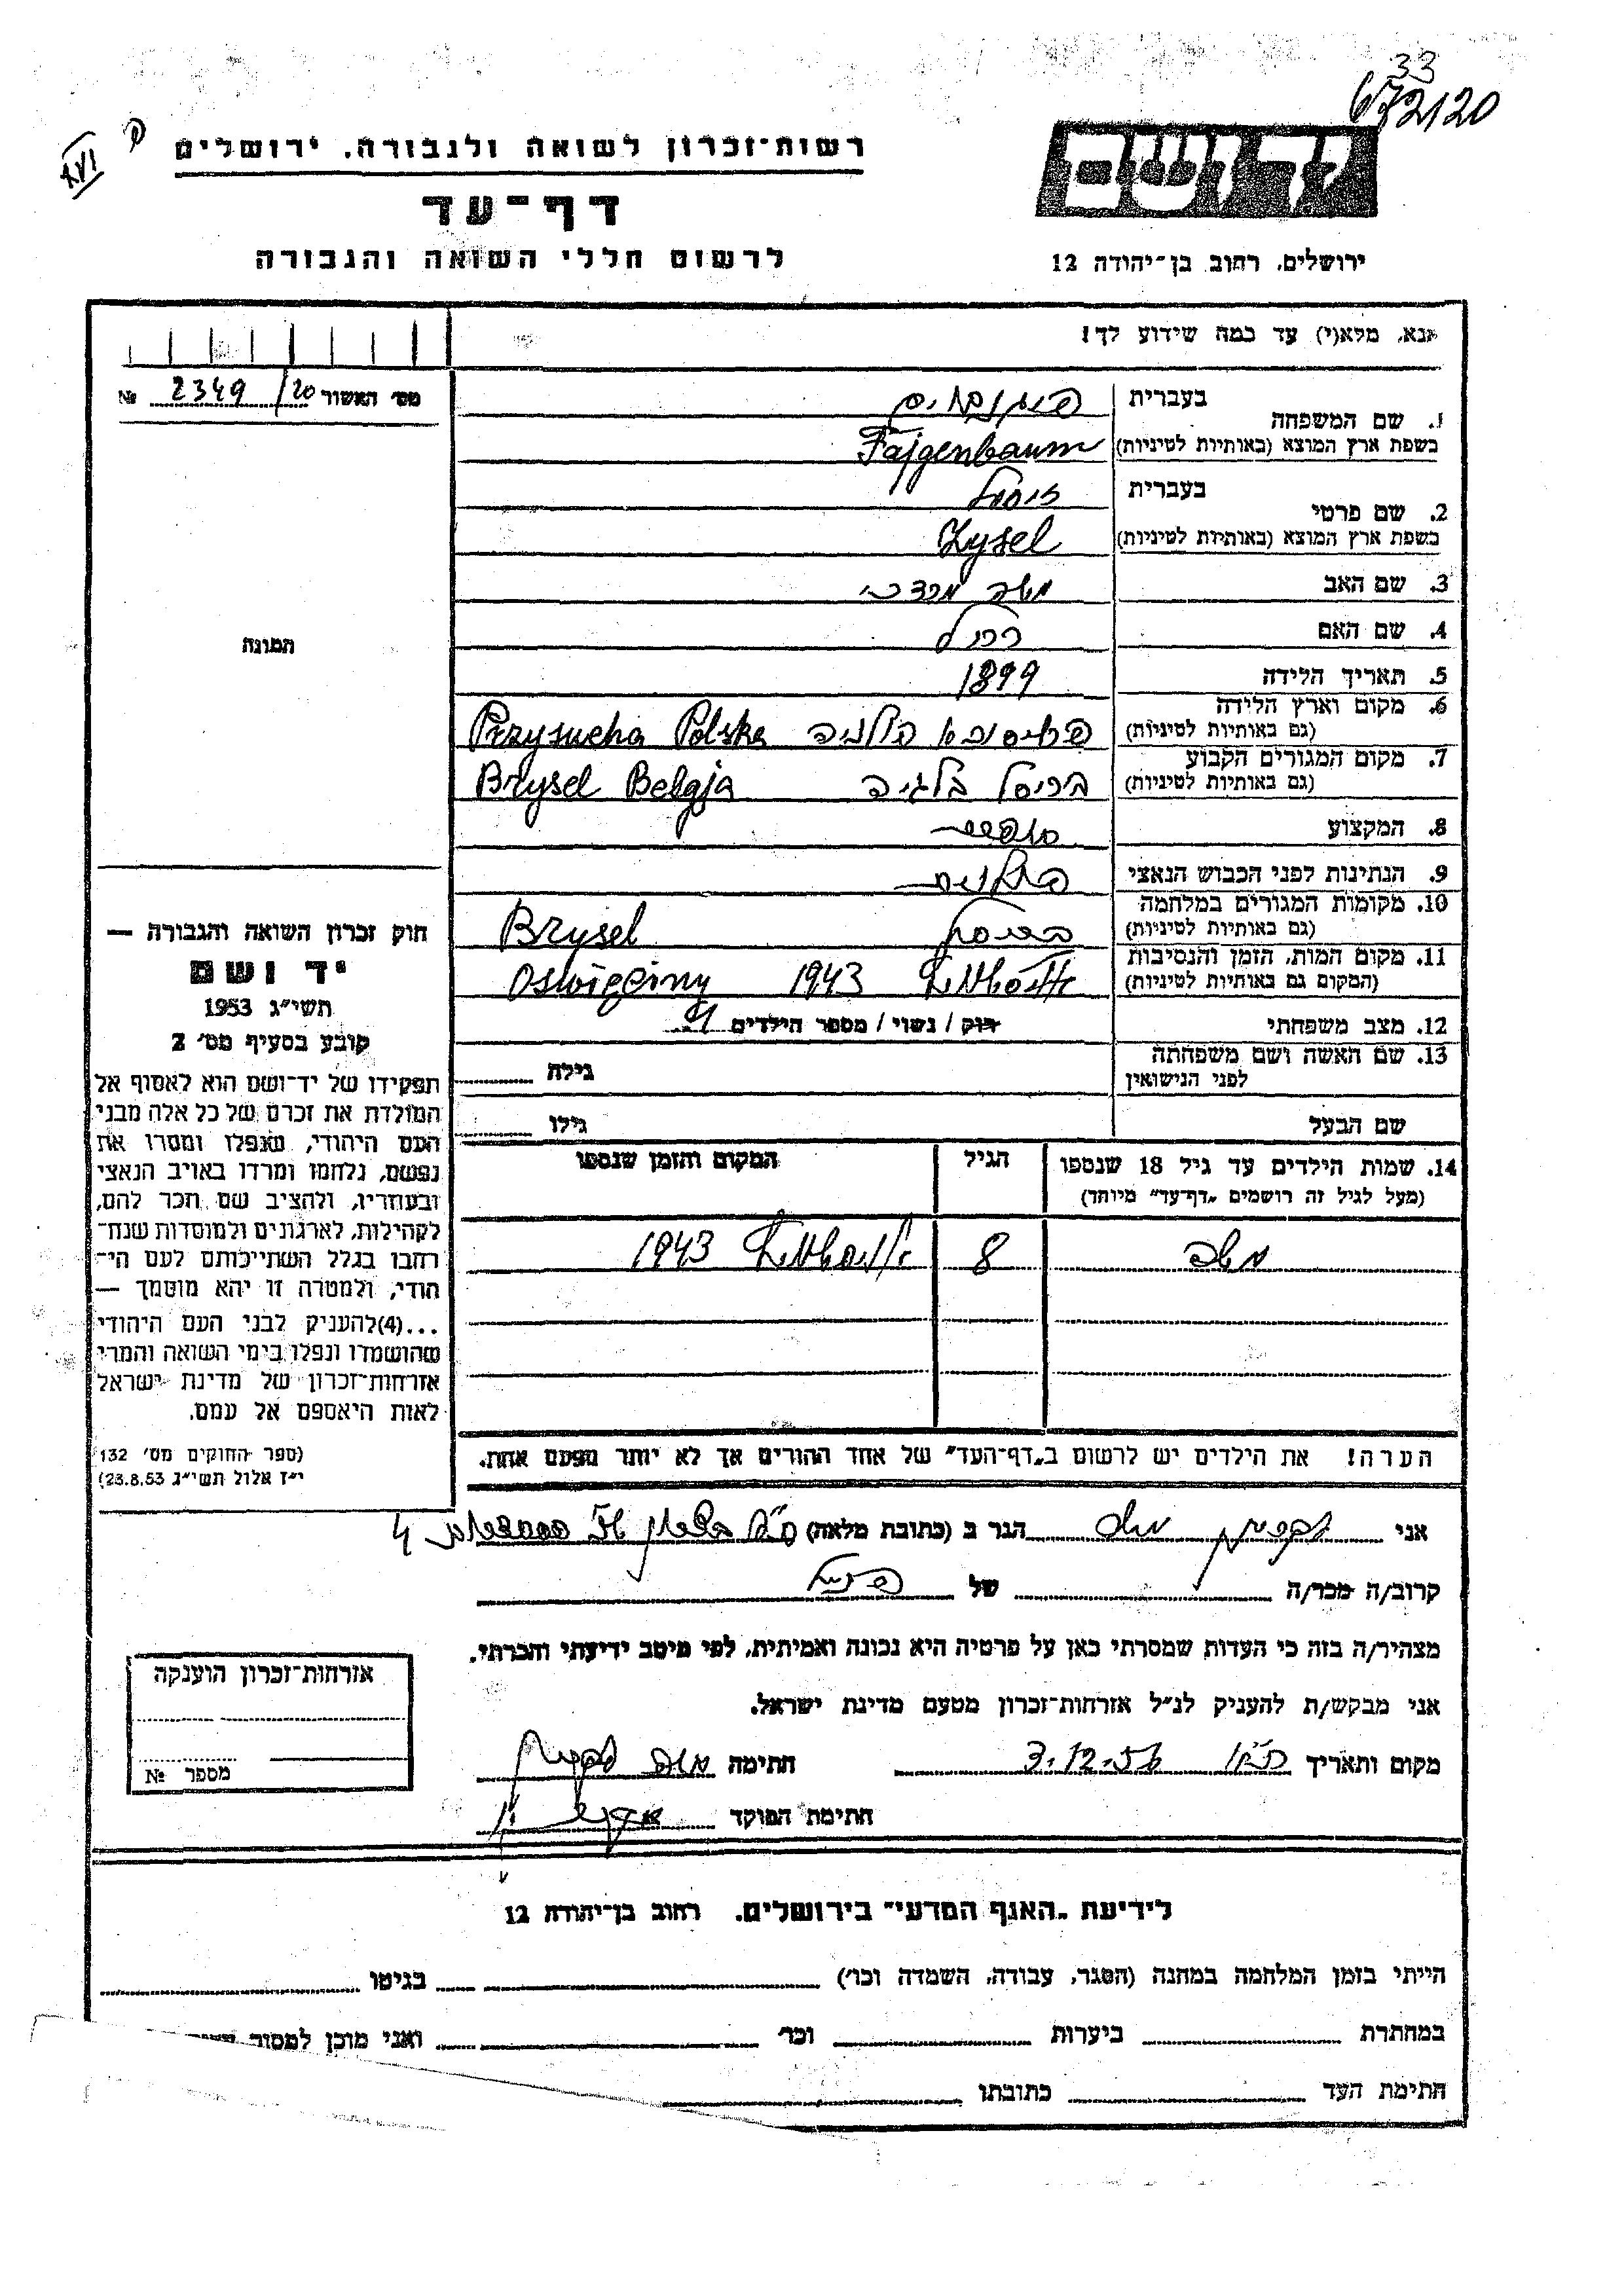 33
672120
XVI
ק
רשות־זכרון לשואה ולגבורה, ירושלים
ד ושם
דף־עד
לרשום חללי השואה והגבורה
ירושלים, רחוב בן־יהודה 12
אנא, מלא(י) עד כמה שידוע לך!
מס׳ האשור 2349/20 №
1. שם המשפחה
בעברית פייגנבוים
בשפת ארץ המוצא (באותיות לטיניות) Fajgenbaum
2. שם פרטי
בעברית זיסל
בשפת ארץ המוצא (באותיות לטיניות) Zysel
3. שם האב משה מרדכי
4. שם האם רחל
5. תאריך הלידה 1899
6. מקום וארץ הלידה
(גם באותיות לטיניות) פשיסוכא פולניה Przysucha Polska
7. מקום המגורים הקבוע
(גם באותיות לטיניות) בריסל בלגיה Brysel Belgja
8. המקצוע סוחר
9. הנתינות לפני הכבוש הנאצי פולנית
10. מקומות המגורים במלחמה
(גם באותיות לטיניות) בריסל Brysel
11. מקום המות, הזמן והנסיבות
(המקום גם באותיות לטיניות) 1943
12. מצב משפחתי רוק / נשוי / מספר הילדים
13. שם האשה ושם משפחתה
לפני הנישואין גילה
שם הבעל גילו
תמונה
חוק זכרון השואה והגבורה —
יד ושם
תשי״ג 1953
קובע בסעיף מס׳ 2
תפקידו של יד־ושם הוא לאסוף אל
המולדת את זכרם של כל אלה מבני
העם היהודי, שנפלו ומסרו את
נפשם, נלחמו ומרדו באויב הנאצי
ובעוזריו, ולהציב שם וזכר להם,
לקהילות, לארגונים ולמוסדות שנח־
רחבו בגלל השתייכותם לעם הי־
הודי, ולמטרה זו יהא מוסמך —
...(4)להעניק לבני העם היהודי
שהושמדו ונפלו בימי השואה והמרי
אזרחות־זכרון של מדינת ישראל
לאות היאספם אל עמם.
(ספר החוקים מס׳ 132
י״ז אלול תשי״ג 23.8.53)
14. שמות הילדים עד גיל 18 שנספו הגיל המקום והזמן שנספו
(מעל לגיל זה רושמים „דף־עד״ מיוחד)
משה 8 1943
הערה! את הילדים יש לרשום ב„דף־העד״ של אחד ההורים אך לא יותר מפעם אחת.
אני משה הגר ב (כתובת מלאה)
קרוב/ה מכר/ה של
מצהיר/ה בזה כי העדות שמסרתי כאן על פרטיה היא נכונה ואמיתית, לפי מיטב ידיעתי והכרתי.
אני מבקש/ת להעניק לנ״ל אזרחות־זכרון מטעם מדינת ישראל.
מקום ותאריך ת״א 3.12.56 חתימה משה
חתימת הפוקד
אזרחות־זכרון הוענקה
מספר №
לידיעת „האגף המדעי״ בירושלים, רחוב בן־יהודה 12
הייתי בזמן המלחמה במחנה (הסגר, עבודה, השמדה וכו׳) בגיטו
במחתרת ביערות וכו׳ ואני מוכן למסור
חתימת העד כתובתו